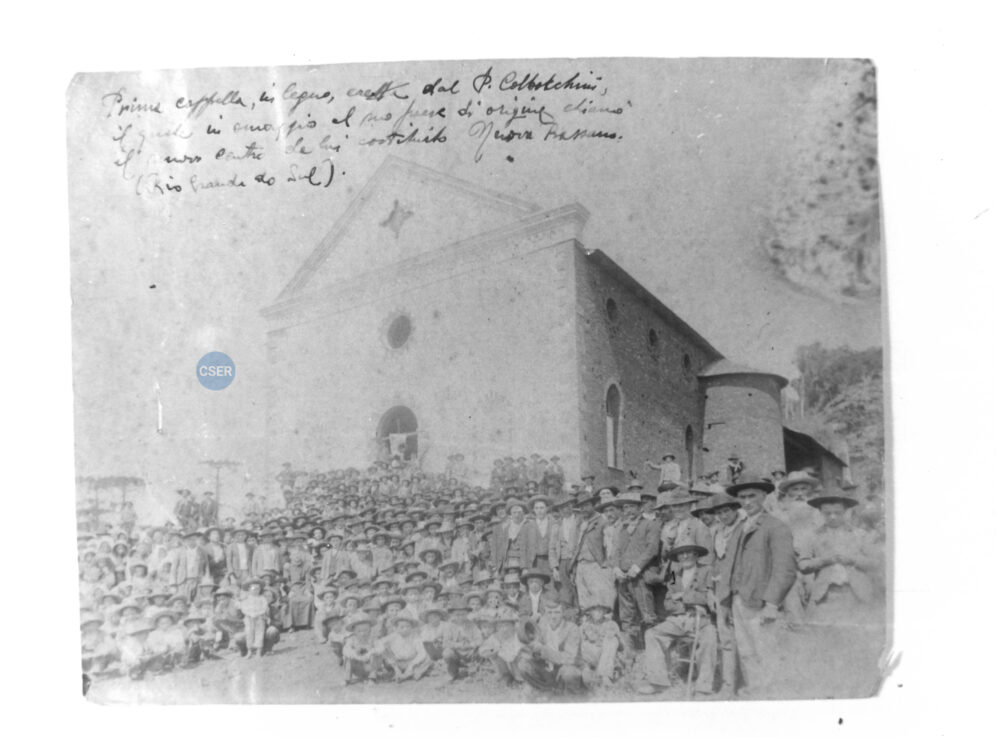 Prima cappella, in legno, eretta dal P. Colbatchini,
il quale in omaggio al suo paese di origine chiamò
il nuovo centro da lui costituito Nuova Bassano.
(Rio Grande do Sul).
CSER